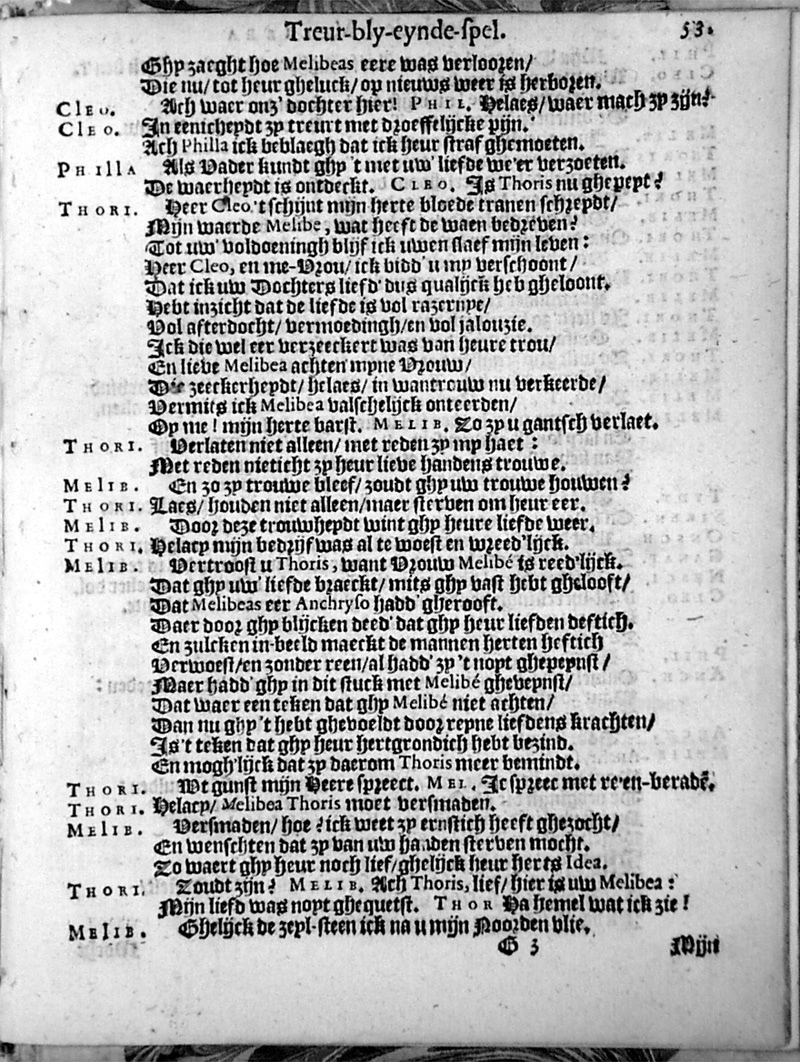 Treur-bly-eynde-spel. 53.
Ghy zaeght hoe Melibeas eere was verlooren/
Die nu/ tot heur gheluck/ op nieuws weer is herboren.
Cleo. Ach waer onz' dochter hier! Phil. Helaes/ waer mach zy zijn?
Cleo. In eenicheydt zy treurt met droeffelijcke pijn.
Ach Philla ick beklaegh dat ick heur straf ghemoeten.
Philla Als Vader kundt ghy 't met uw' liefde we'er verzoeten.
De waerheydt is ontdeckt. Cleo. Is Thoris nu ghepept?
Thori. Heer Cleo 't schijnt mijn herte bloede tranen schrepdt/
Mijn waerde Melibe, wat heeft de waen bedreven?
Tot uw' voldoeningh blijf ick uwen slaef mijn leven:
Heer Cleo, en me-Vrou/ ick bidd' u my verschoont/
Dat ick uw Dochters liefd' dus qualijck heb gheloont.
Hebt inzicht dat de liefde is vol razernye/
Vol afterdocht/ vermoedingh/ en vol jalouzie.
Ick die wel eer verzeeckert was van heure trou/
En lieve Melibea achten myne Vrouw/
Die zeeckerheydt/ helaes/ in wantrouw nu verkeerde/
Vermits ick Melibea valschelijck onteerden/
Op me! mijn herte barst. Melib. Zo zy u gantsch verlaet.
Thori. Verlaten niet alleen/ met reden zy my haet:
Met reden nieticht zy heur lieve handens trouwe.
Melib. En zo zy trouwe bleef/ zoudt ghy uw trouwe houwen?
Thori. Laes/ houden niet alleen/ maer sterven om heur eer.
Melib. Door deze trouwheydt wint ghy heure liefde weer.
Thori. Helacy mijn bedrijf was al te woest en wreed'lijck.
Melib. Vertroost u Thoris, want Vrouw Melibé is reed'lijck.
Dat ghy uw' liefde braeckt/ mits ghy vast hebt ghelooft/
Dat Melibeas eer Anchryso hadd' gherooft.
Daer door ghy blijcken deed' dat ghy heur liefden deftich.
En zulcken in-beeld maeckt de mannen herten heftich
Verwoest/ en zonder reen/ al hadd' zy 't noyt ghepeynst/
Maer hadd' ghy in dit stuck met Melibé gheveynst/
Dat waer een teken dat ghy Melibé niet achten/
Dan nu ghy 't hebt ghevoeldt door reyne liefdens krachten/
Is 't teken dat ghy heur hertgrondich hebt bezind.
En mogh'lijck dat zy daerom Thoris meer bemindt.
Thori. Wt gunst mijn Heere spreect. Mel. Ic spreec met re'en-beradē.
Thori. Helacy/ Melibea Thoris moet versmaden.
Melib. Versmaden/ hoe? ick weet zy ernstich heeft ghezocht/
En wenschten dat zy van uw handen sterven mocht.
Zo waert ghy heur noch lief/ ghelijck heur herts Idea.
Thori. Zoudt zijn? Melib. Ach Thoris, lief/ hier is uw Melibea:
Mijn liefd was noyt ghequetst. Thor Ha hemel wat ick zie!
Melib. Ghelijck de zeyl-steen ick na u mijn Noorden vlie.
G 3 Mijn